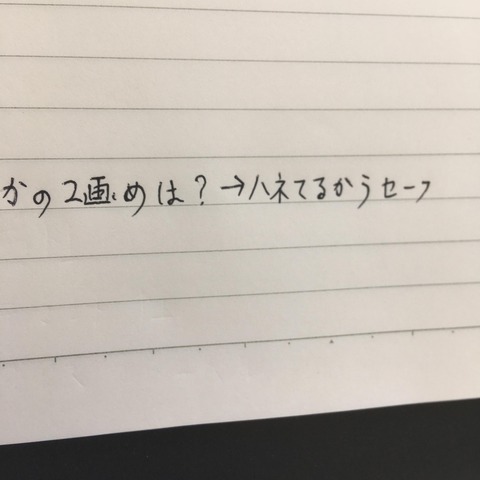 かの2画めは？→ハネてるからセーフ